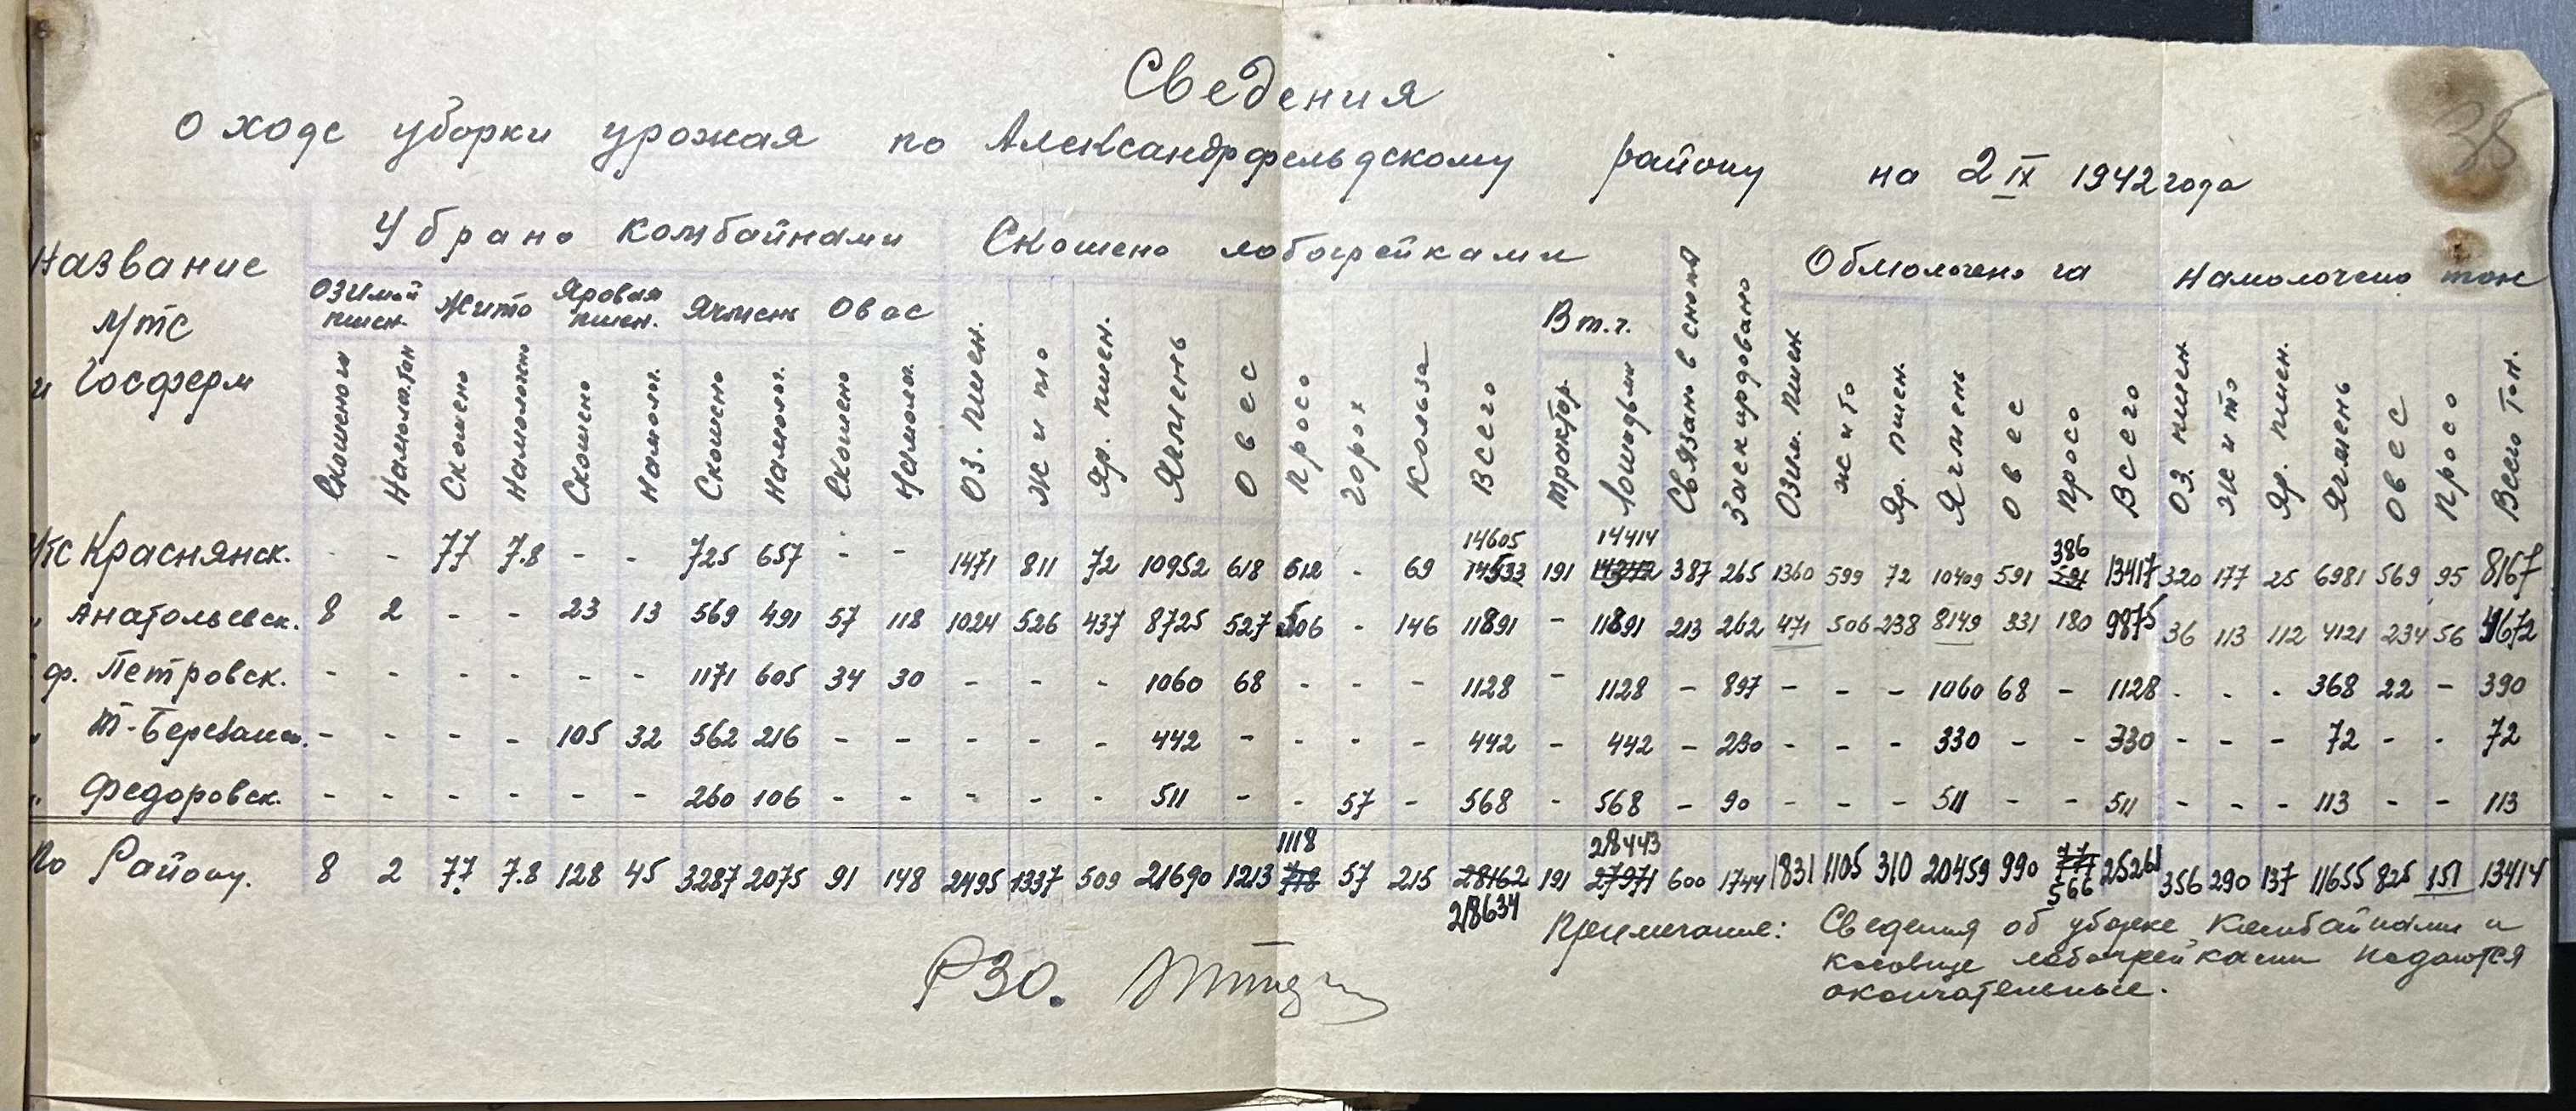 35
Сведения
о ходе уборки урожая по Александрфельдскому району на 2 IX 1942 года
Название МТС и Госферм
Убрано комбайнами Скошено лобогрейками Связано в снопы Заскирдовано Обмолочено га Намолочено тон
Озимой пшен. Жито Яровая пшен. Ячмень Овес В т.ч.
Скошено га Намолот. тон Скошено Намолочено Скошено Намолот. Скошено Намолот. Скошено Намолот. Оз. пшен. Жито Яр. пшен. Ячмень Овес Просо Горох Кольза Всего Трактор. Лошадьми Озим. пшен. Жито Яр. пшен. Ячмень Овес Просо Всего Оз. пшен. Жито Яр. пшен. Ячмень Овес Просо Всего тон.
14605 14414 386
МТС Краснянск. - - 77 7.8 - - 725 657 - - 1471 811 72 10952 618 612 - 69 14533 191 14342 387 265 1360 599 72 10409 591 591 13417 320 177 25 6981 569 95 8167
" Анатольевск. 8 2 - - 23 13 569 491 57 118 1024 526 437 8725 527 506 - 146 11891 - 11891 213 262 471 506 238 8149 331 180 9875 36 113 112 4121 234 56 4672
ф. Петровск. - - - - - - 1171 605 34 30 - - - 1060 68 - - - 1128 - 1128 - 897 - - - 1060 68 - 1128 - - - 368 22 - 390
" Т-Березанск. - - - - 105 32 562 216 - - - - - 442 - - - - 442 - 442 - 230 - - - 330 - - 330 - - - 72 - - 72
" Федоровск. - - - - - - 260 106 - - - - - 511 - - 57 - 568 - 568 - 90 - - - 511 - - 511 - - - 113 - - 113
1118 28443
По Району. 8 2 77 7.8 128 45 3287 2075 91 148 2495 1337 509 21690 1213 718 57 215 28162 191 27971 600 1744 1831 1105 310 20459 990 771 25261 356 290 137 11655 825 151 13414
28634 566
Примечание: Сведения об уборке комбайнами и
косовице лобогрейками подаются
окончательные.
РЗО.